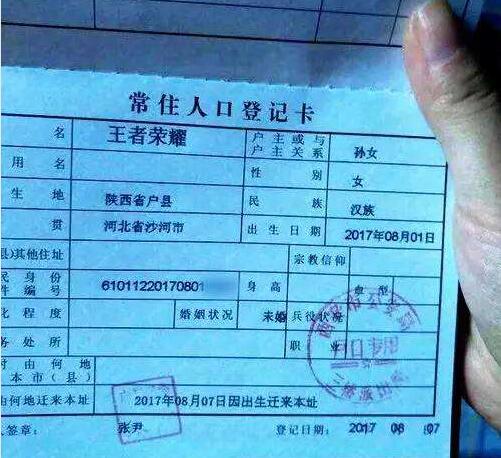 常住人口登记卡
名 王者荣耀 户主或与户主关系 孙女
用名 性别 女
生地 陕西省户县 民族 汉族
贯 河北省沙河市 出生日期 2017年08月01日
县)其他住址 宗教信仰
民身份件编号 61011220170801 身高 血型
化程度 婚姻状况 未婚 兵役状况
务处所 职业
时由何地本市(县)
何地迁来本址 2017年08月07日因出生迁来本址
人签章: 张尹 登记日期: 2017 08 07
市公安局
户口专用
派出所